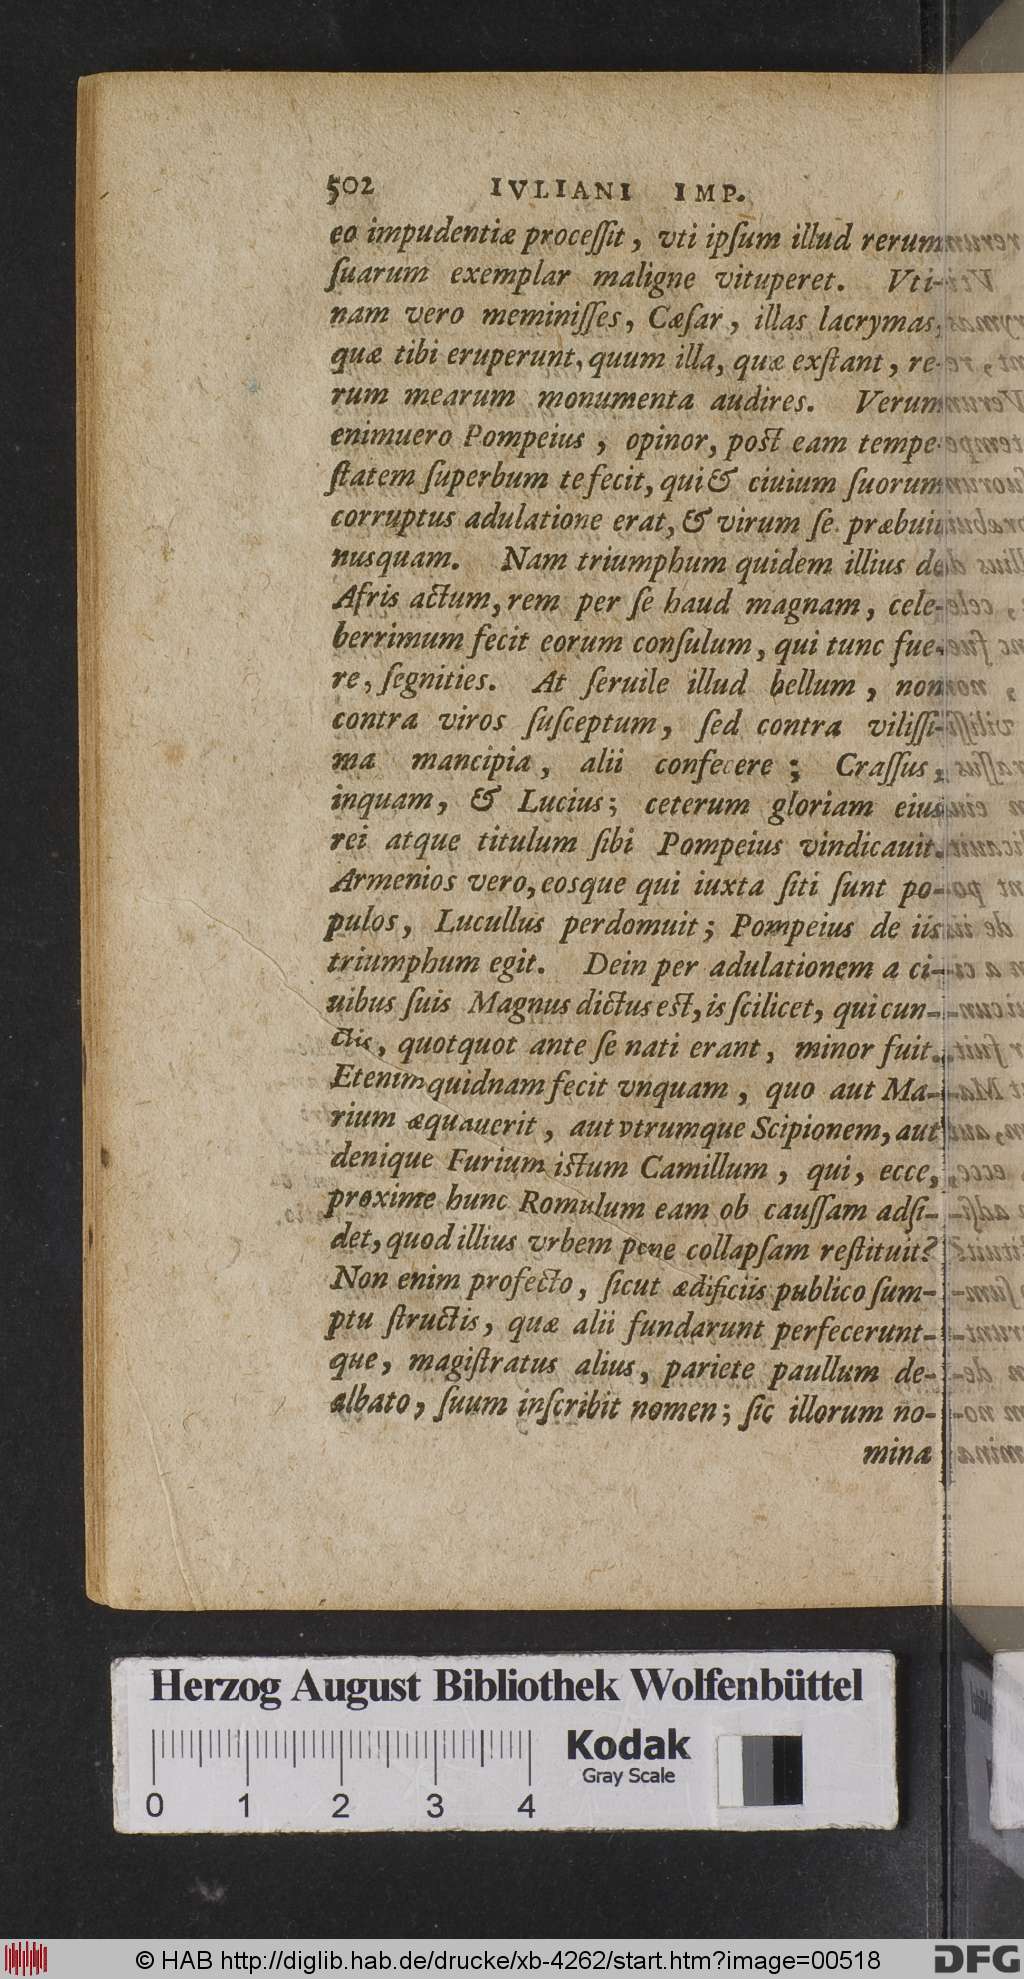 502 IVLIANI IMP.
eo impudentiæ proceſſit, vti ipſum illud rerum
ſuarum exemplar maligne vituperet. Vti-
nam vero meminiſſes, Cæſar, illas lacrymas,
quæ tibi eruperunt, quum illa, quæ exſtant, re-
rum mearum monumenta audires. Verum
enimuero Pompeius, opinor, post eam tempe-
ſtatem ſuperbum te fecit, qui & ciuium ſuorum
corruptus adulatione erat, & virum ſe præbuit
nusquam. Nam triumphum quidem illius de
Afris actum, rem per ſe haud magnam, cele-
berrimum fecit eorum conſulum, qui tunc fue-
re, ſegnities. At ſeruile illud bellum, non
contra viros ſuſceptum, ſed contra viliſſi-
ma mancipia, alii confecere; Craſſus,
inquam, & Lucius; ceterum gloriam eius
rei atque titulum ſibi Pompeius vindicauit.
Armenios vero, eosque qui iuxta ſiti ſunt po-
pulos, Lucullus perdomuit; Pompeius de iis
triumphum egit. Dein per adulationem a ci-
uibus ſuis Magnus dictus est, is ſcilicet, qui cun-
ctis, quotquot ante ſe nati erant, minor fuit.
Etenim quidnam fecit vnquam, quo aut Ma-
rium æquauerit, aut vtrumque Scipionem, aut
denique Furium istum Camillum, qui, ecce,
proxime hunc Romulum eam ob cauſſam adſi-
det, quod illius vrbem pene collapſam reſtituit?
Non enim profecto, ſicut ædificiis publico ſum-
ptu ſtructis, quæ alii fundarunt perfecerunt-
que, magiſtratus alius, pariete paullum de-
albato, ſuum inſcribit nomen; ſic illorum no-
mina
Herzog August Bibliothek Wolfenbüttel
Kodak
Gray Scale
0 1 2 3 4
© HAB http://diglib.hab.de/drucke/xb-4262/start.htm?image=00518
DFG